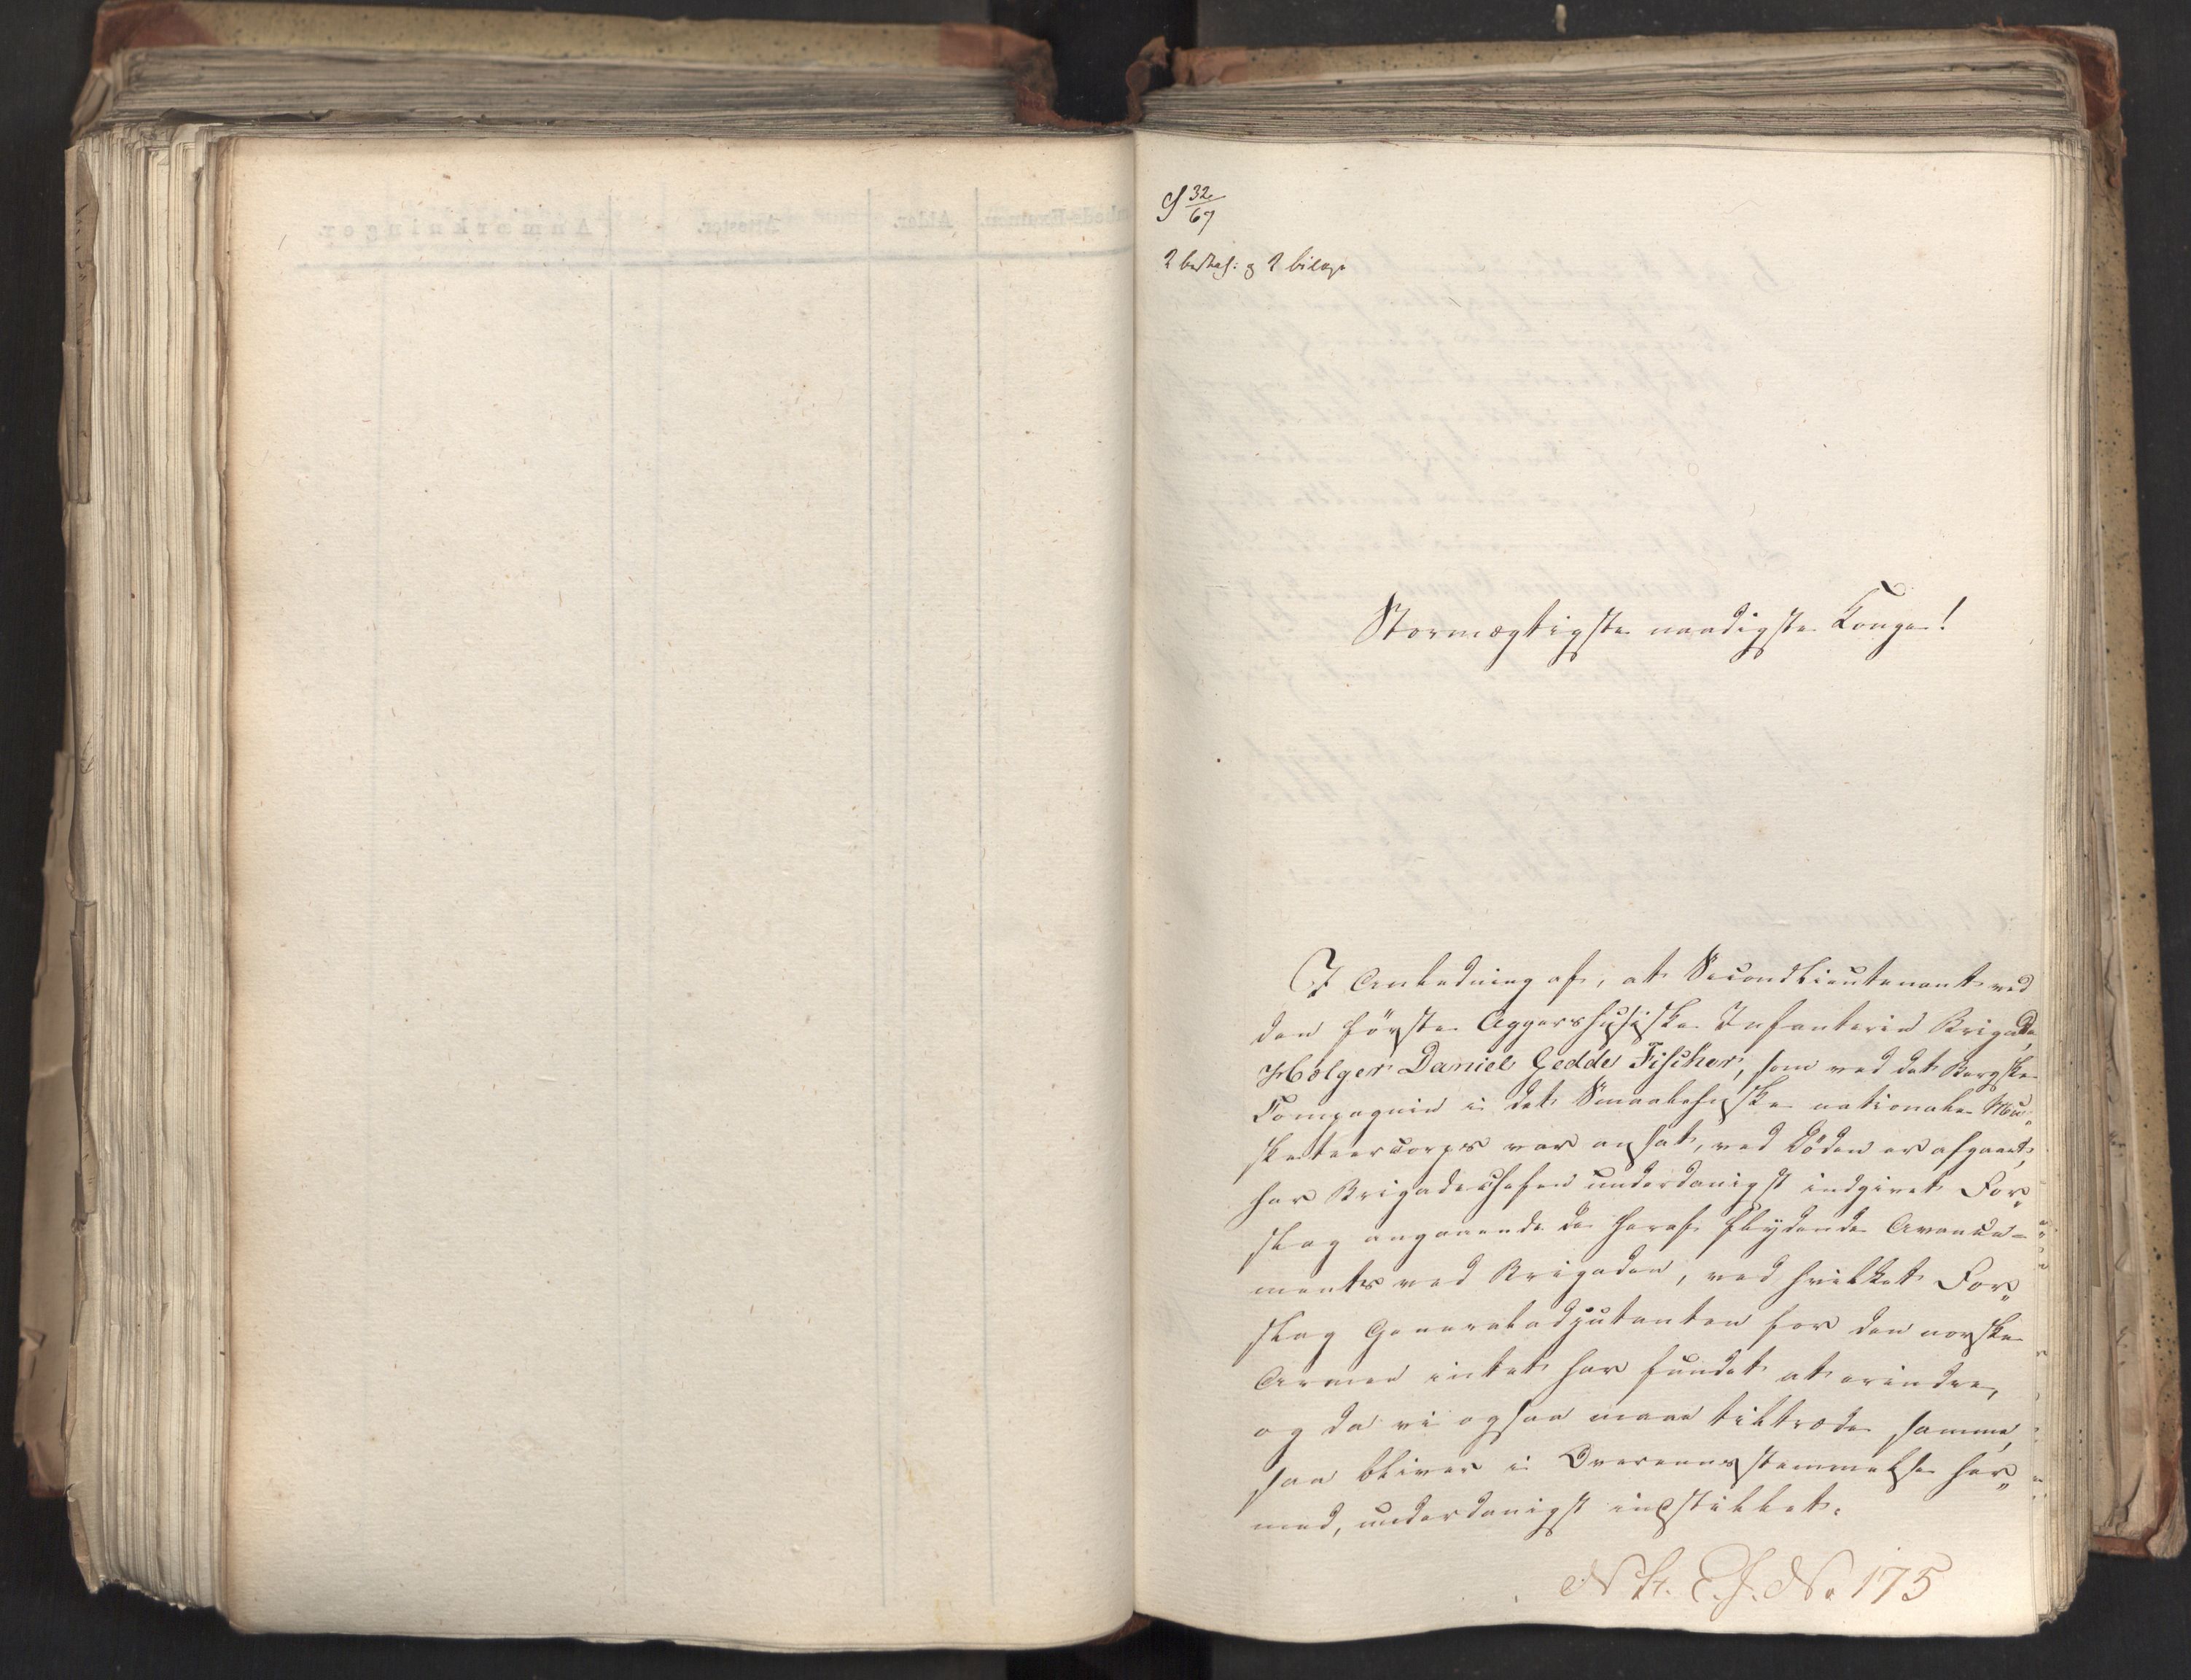 S 32/67
2 bestal: og 2 bilage
Stormægtigste naadigste Konge!
I Anledning af, at Secondlieutenant ved
den første Aggershusiske Infanterie Brigade,
Holger Daniel Gedde Fischer, som ved det Bergske
Compagnie i det Smaalehnske nationale Mu„
sketeercorps var ansat, ved Døden er afgaaet,
har Brigadechefen underdanigst indgivet For„
slag angaaende de heraf flydende Avance-
ments ved Brigaden, ved hvilket For„
slag Generaladjutanten for den norske
Armee intet har fundet at erindre,
og da vi ogsaa maae tiltræde samme,
saa bliver i Overeensstemmelse her„
med, underdanigst indstillet:
No 175
Anmærkninger.
Attester.
Alder.